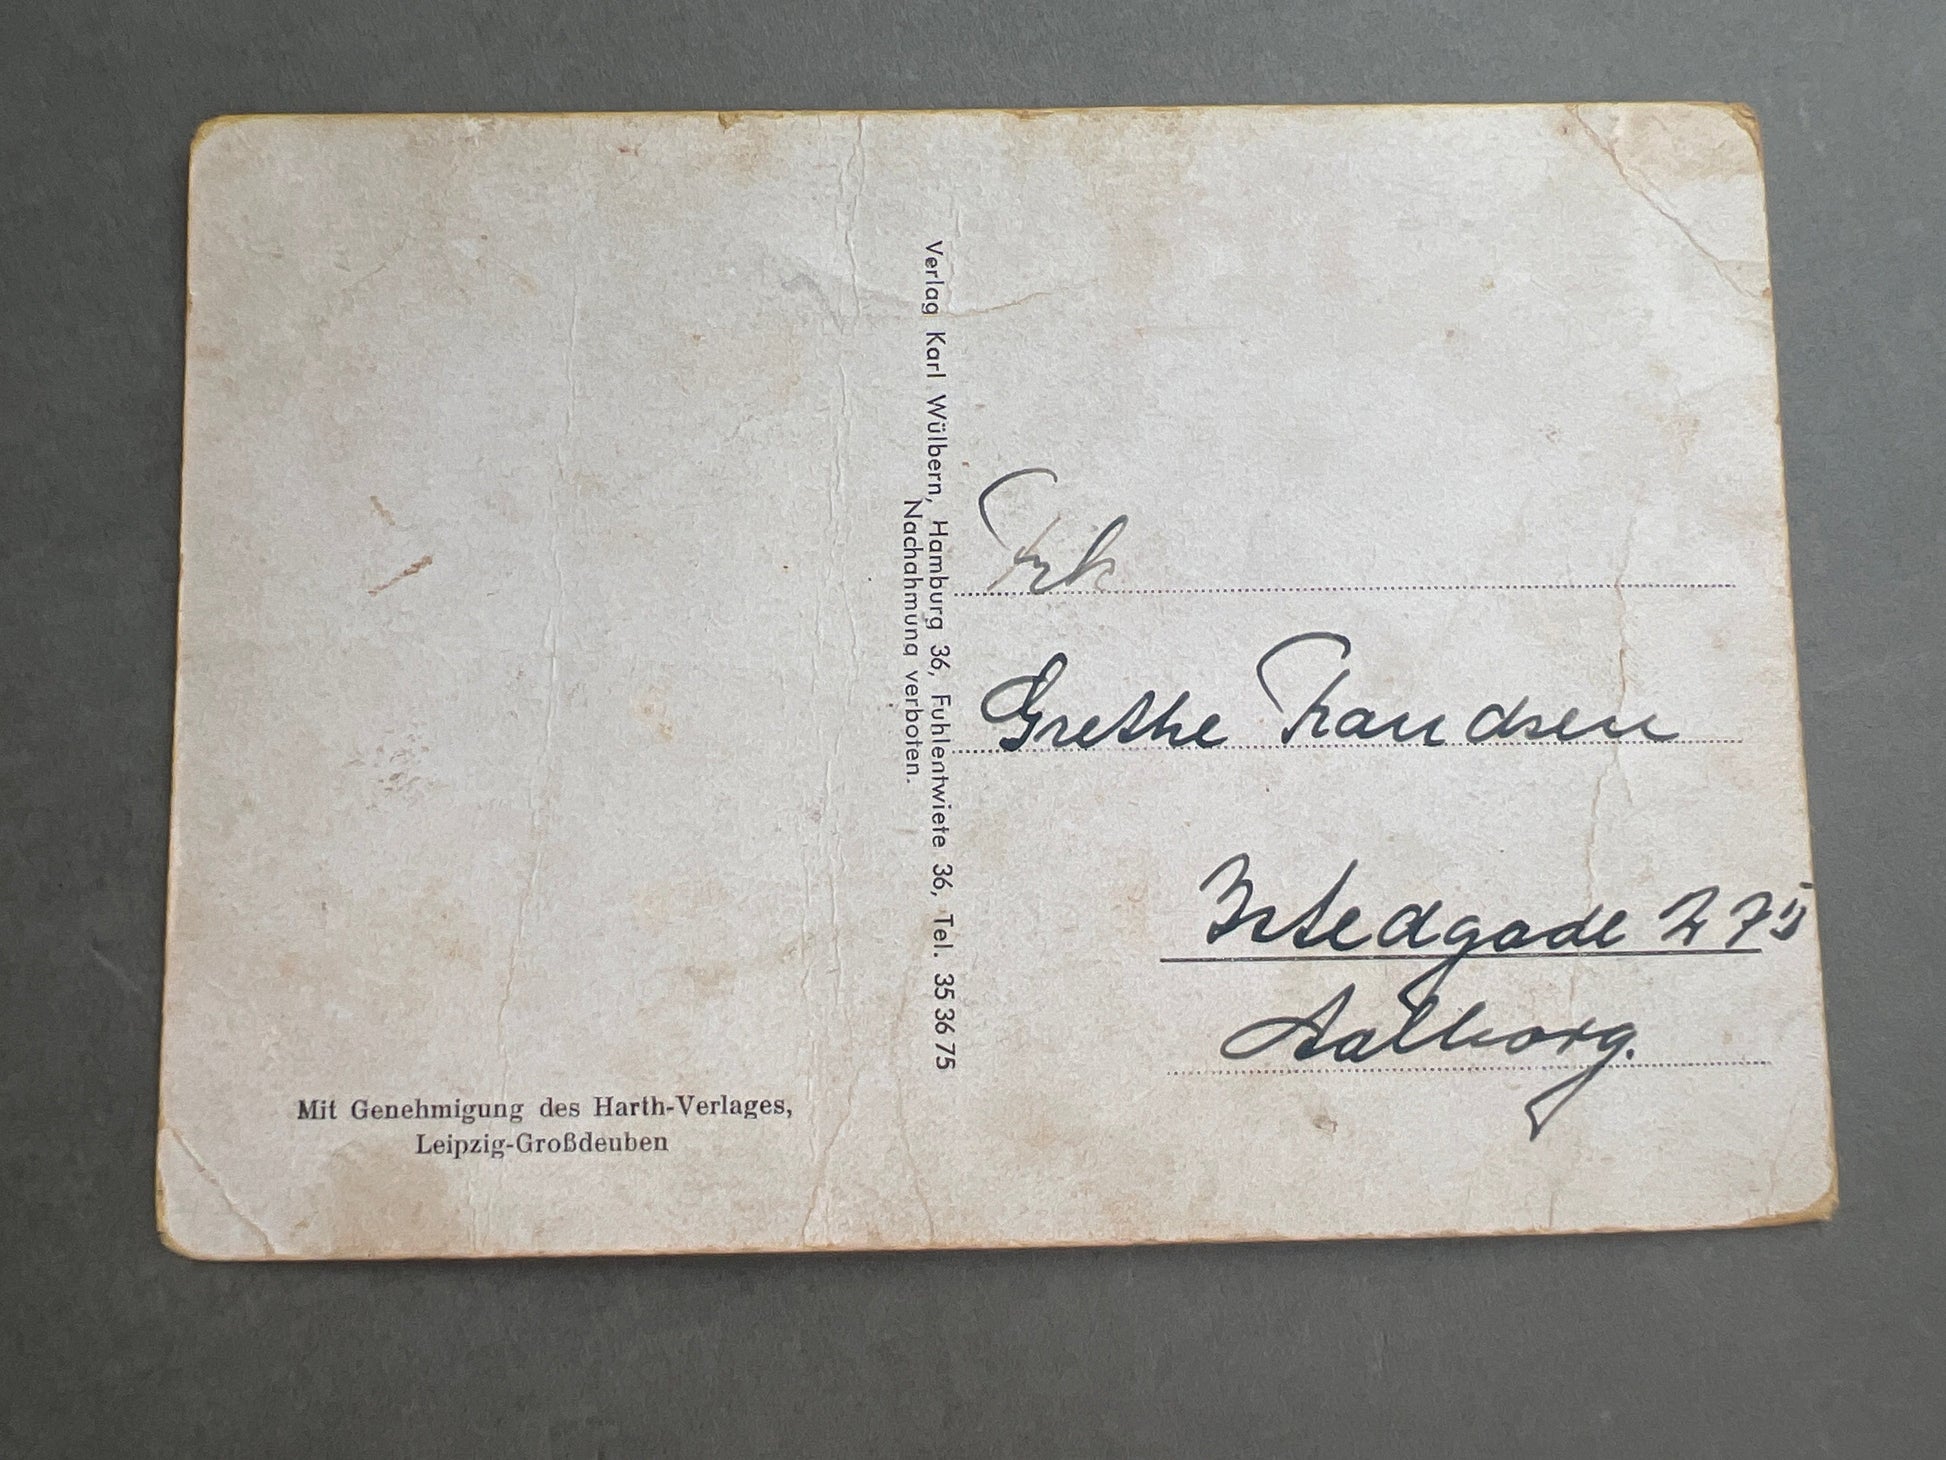 Mit Genehmigung des Harth-Verlages,
Leipzig-Großdeuben
Verlag Karl Wülbern, Hamburg 36, Fuhlentwiete 36, Tel. 35 36 75
Nachahmung verboten.
Frk
Grethe Frandsen
Istedgade 27
Aalborg.